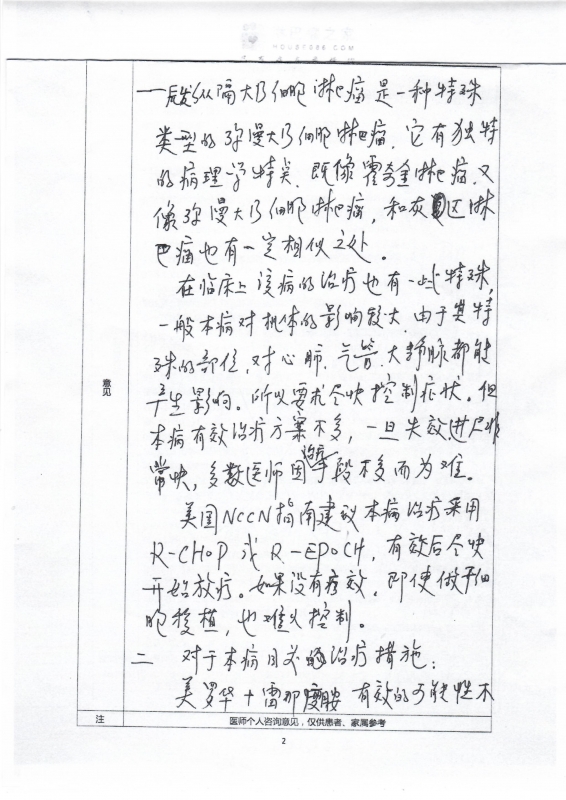 HOUSTOBB.COM
一、原发纵隔大B细胞淋巴瘤是一种特殊
类型的弥漫大B细胞淋巴瘤,它有独特
的病理学特点,既像霍奇金淋巴瘤,又
像弥漫大B细胞淋巴瘤,和灰区淋
巴瘤也有一定相似之处。
在临床上该病的治疗也有一些特殊,
一般本病对机体的影响较大,由于其特
殊的部位,对心肺、气管、大静脉都能
产生影响。所以要求尽快控制症状。但
本病有效治疗方案不多,一旦失效进展非
常快,多数医师因治疗手段不多而为难。
美国NCCN指南建议本病治疗采用
R-CHOP或R-EPOCH,有效后尽快
开始放疗。如果没有疗效,即使做干细
胞移植,也难以控制。
二 对于本病目前的治疗措施:
美罗华+雷那度胺 有效的可能性不
意见
注 医师个人咨询意见,仅供患者、家属参考
2